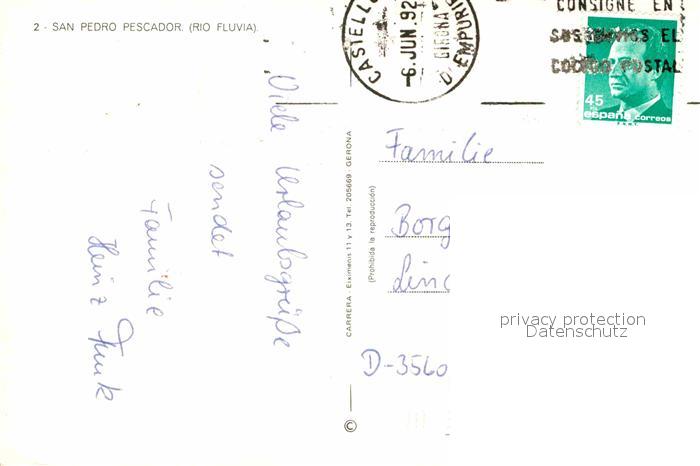 2 - SAN PEDRO PESCADOR. (RIO FLUVIA).
Viele Urlaubsgrüße
sendet
Familie
Heinz Funk
CARRERA - Eiximenis 11 y 13. Tel. 205669 - GERONA
(Prohibida la reproducción)
©
CASTELLO D'EMPURI
6 JUN. 92
GIRONA
CONSIGNE EN
SUS ENVIOS EL
CODIGO POSTAL
45
PTA
españa correos
Familie
Borg
Linc
D-3560
privacy protection
Datenschutz